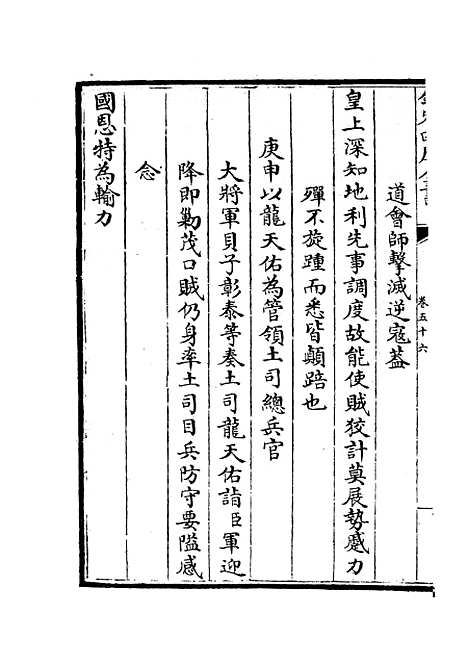 道會師擊滅逆寇葢
皇上深知地利先事調度故能使賊狡計莫展勢蹙力
殫不旋踵而悉皆顛踣也
庚申以龍天佑為管領土司總兵官
大將軍貝子彰泰等奏土司龍天佑詣臣軍迎
降即勦茂口賊仍身率土司目兵防守要隘感
念
國恩特為輸力
卷五十六